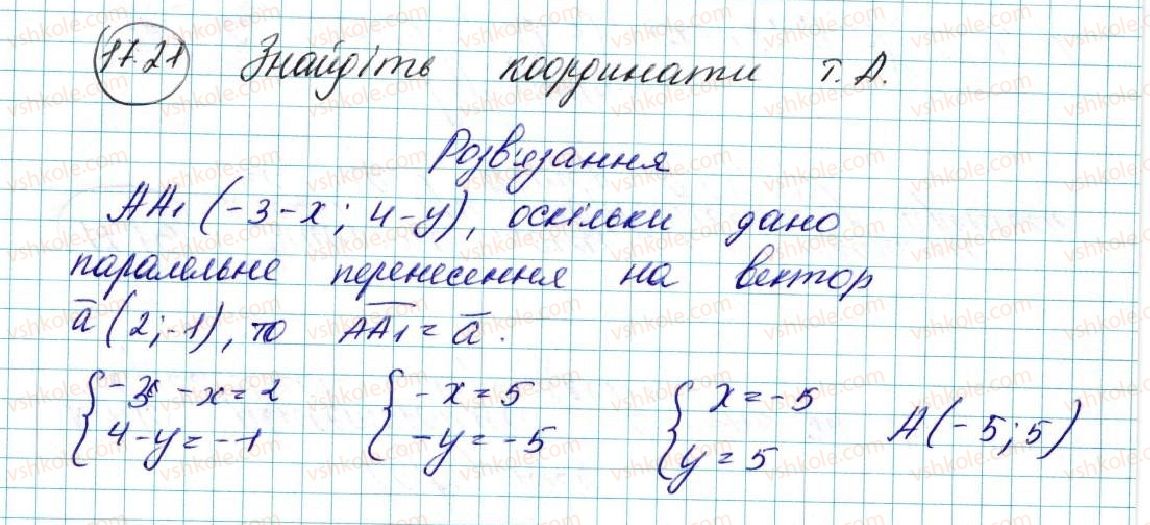 17.21 Знайдіть координати т. А.
Розв'язання
АА₁ (-3-x; 4-y), оскільки дано
паралельне перенесення на вектор
a̅ (2;-1), то A̅A̅₁̅ = a̅.
{-3-x=2 {-x=5 {x=-5 A(-5;5)
{4-y=-1 {-y=-5 {y=5